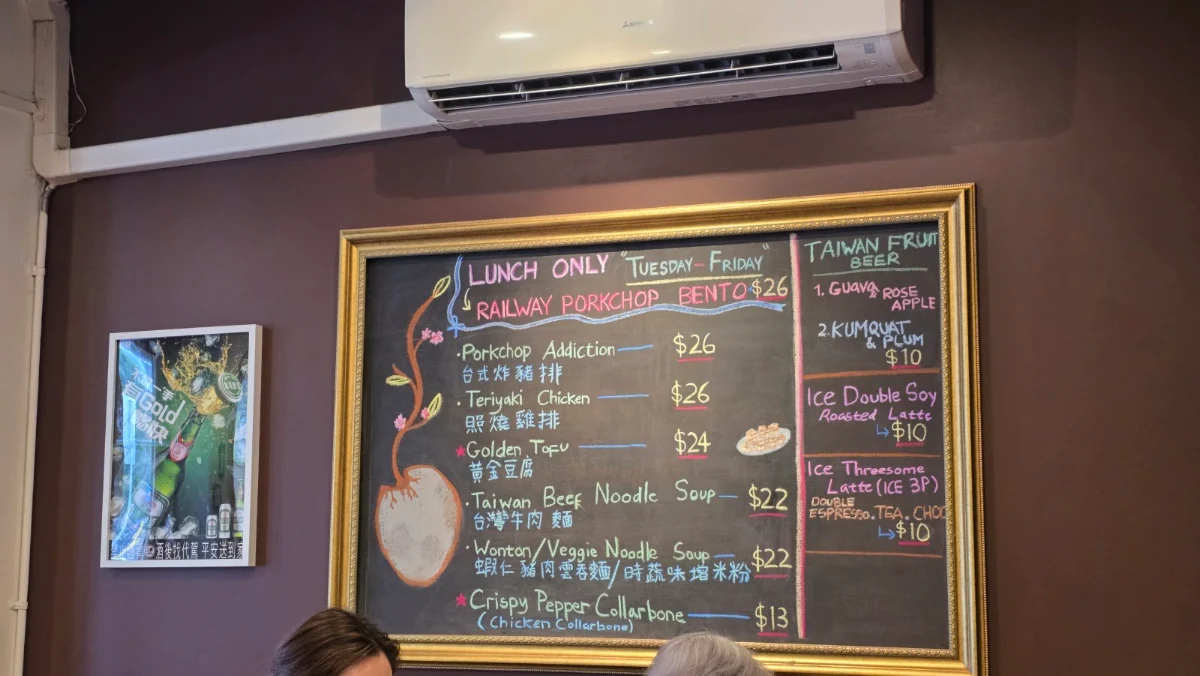 MITSUBISHI
LUNCH ONLY "TUESDAY-FRIDAY"
RAILWAY PORKCHOP BENTO $26
·Porkchop Addiction $26
台式炸豬排
·Teriyaki Chicken $26
照燒雞排
★Golden Tofu $24
黃金豆腐
·Taiwan Beef Noodle Soup $22
台灣牛肉麵
·Wonton/Veggie Noodle Soup $22
蝦仁豬肉雲吞麵/時蔬味增米粉
★Crispy Pepper Collarbone $13
(Chicken Collarbone)
TAIWAN FRUIT
BEER
1. GUAVA & ROSE
APPLE
2. KUMQUAT
& PLUM
$10
Ice Double Soy
Roasted Latte
$10
Ice Threesome
Latte (ICE 3P)
DOUBLE
ESPRESSO.TEA.CHOC
$10
有Gold
酒後找代駕 平安送到家